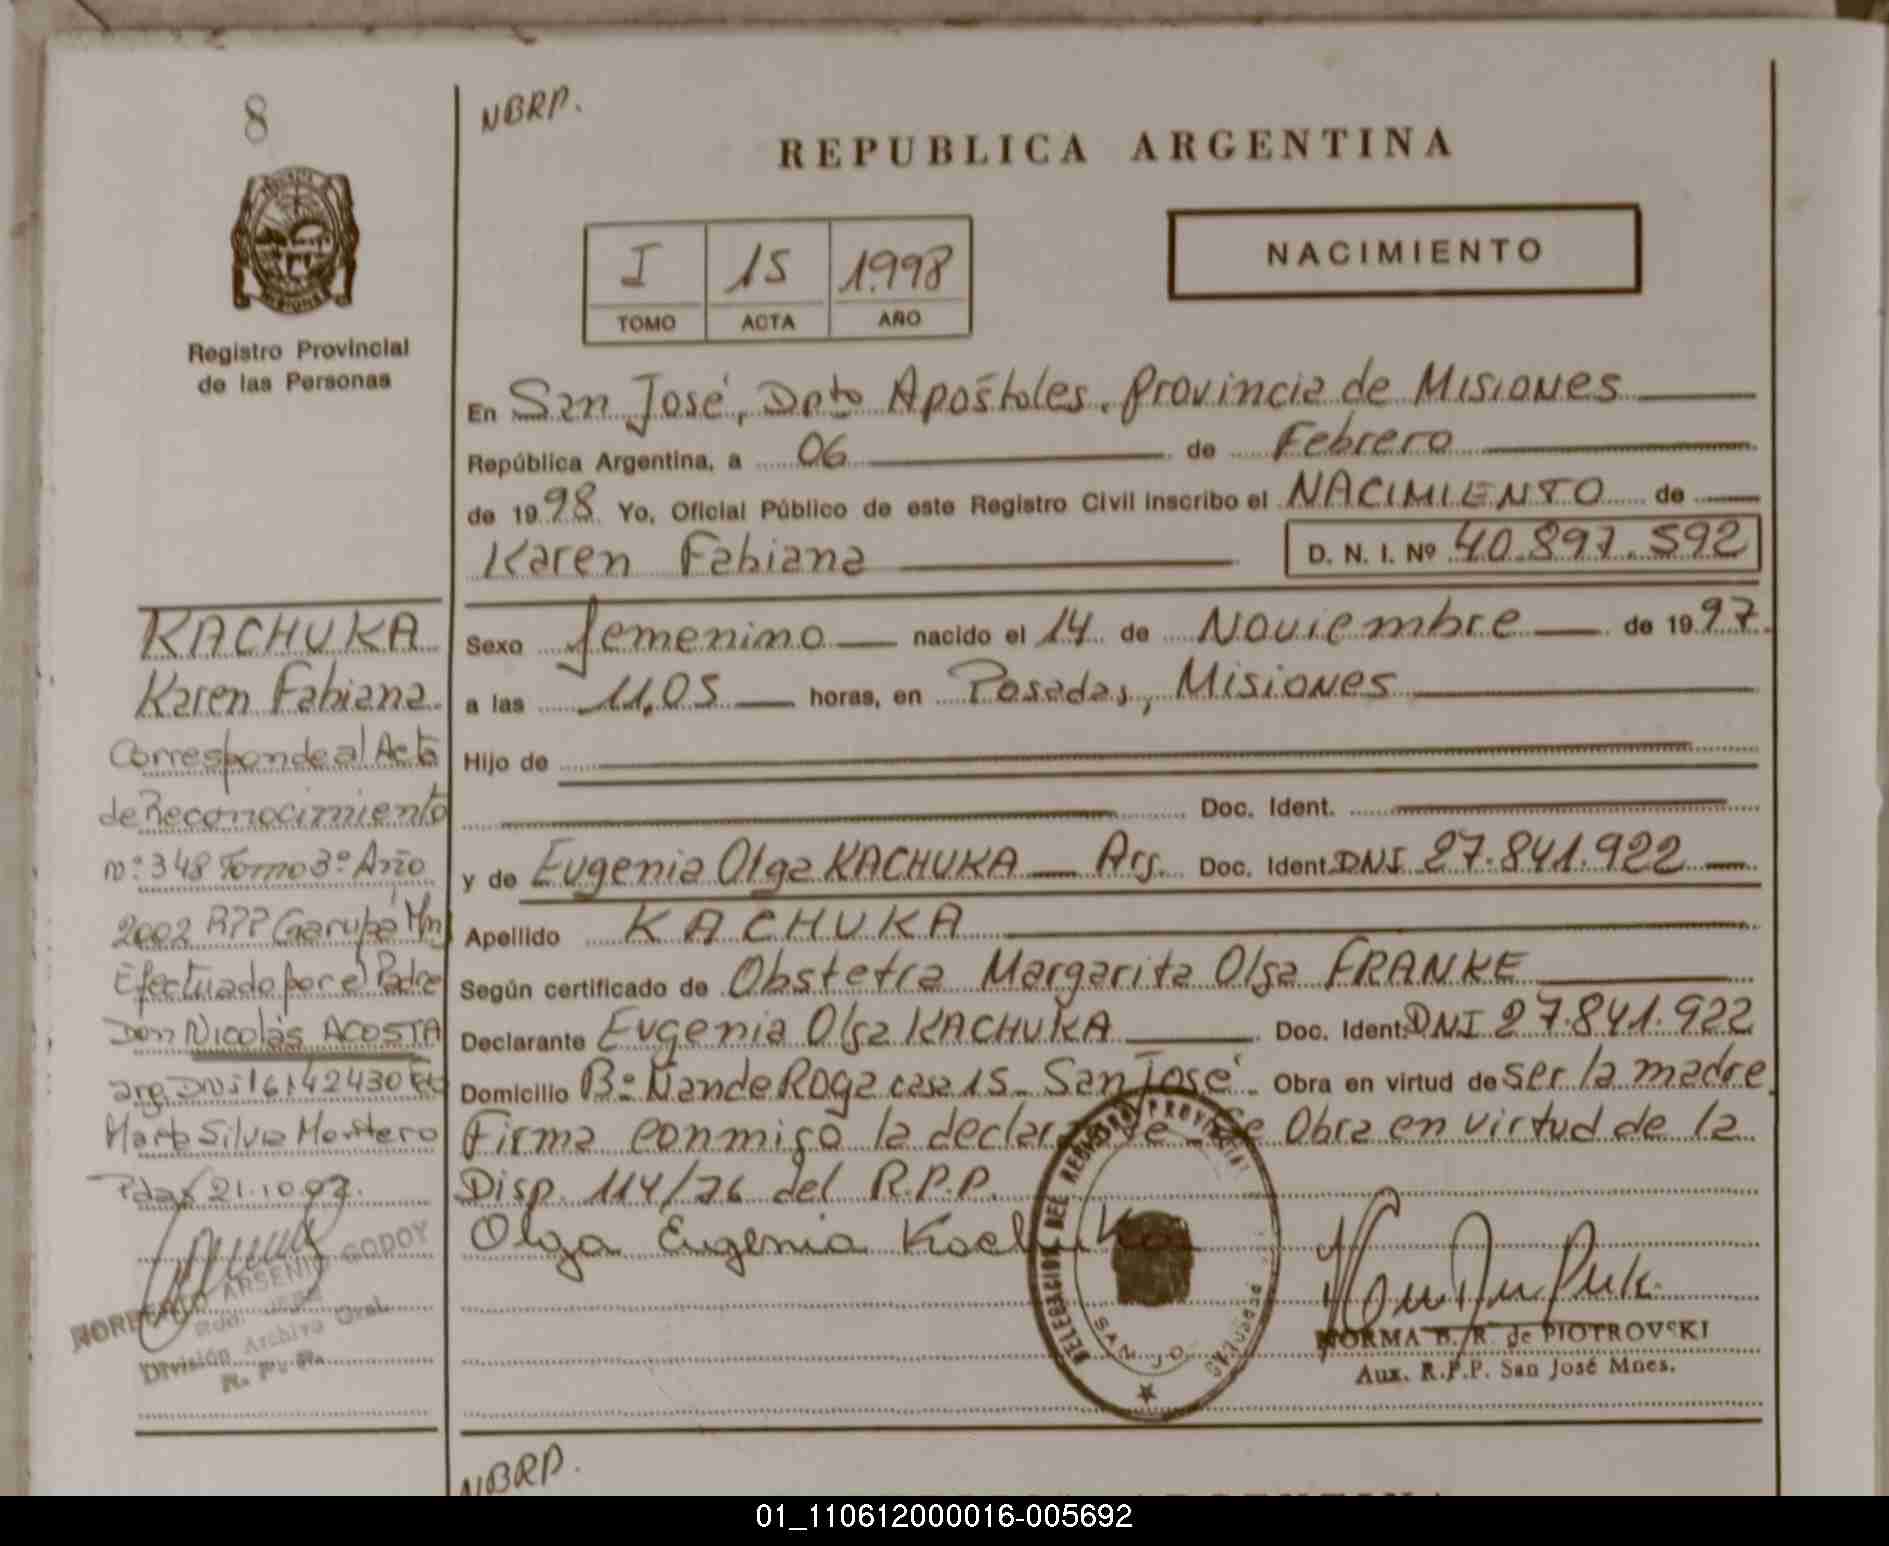 8
NBRP.
REPUBLICA ARGENTINA
I 15 1.998
TOMO ACTA AÑO
NACIMIENTO
Registro Provincial
de las Personas
En San José, Dpto Apóstoles. Provincia de Misiones
República Argentina, a 06 de Febrero
de 1998 Yo, Oficial Público de este Registro Civil inscribo el NACIMIENTO de
Karen Fabiana D. N. I. Nº 40.897.592
Sexo femenino nacido el 14 de Noviembre de 1997.
a las 11,05 horas, en Posadas, Misiones
Hijo de
Doc. Ident.
y de Eugenia Olga KACHUKA Arg. Doc. Ident. DNI 27.841.922
Apellido KACHUKA
Según certificado de Obstetra Margarita Olga FRANKE
Declarante Eugenia Olga KACHUKA Doc. Ident. DNI 27.841.922
Domicilio Bº Ñande Roga casa 15 - San José - Obra en virtud de ser la madre
Firma conmigo la declarante - Se Obra en virtud de la
Disp. 114/76 del R.P.P.
Olga Eugenia Kachuka
DELEGACION DEL REGISTRO PROVINCIAL
SAN JO
NORMA B. R. de PIOTROVSKI
Aux. R.P.P. San José Mnes.
KACHUKA
Karen Fabiana.
Corresponde al Acta
de Reconocimiento
nº 348 Tomo 3º Año
2002 RPP Garupá Mns
Efectuado por el Padre
Don Nicolás ACOSTA
arg. DNI 16142430
Marta Silvia Montero
Pdas 21.10.02.
NORBERTO ARSENIO GODOY
División Archivo Gral.
R. P. P.
NBRP.
01_110612000016-005692